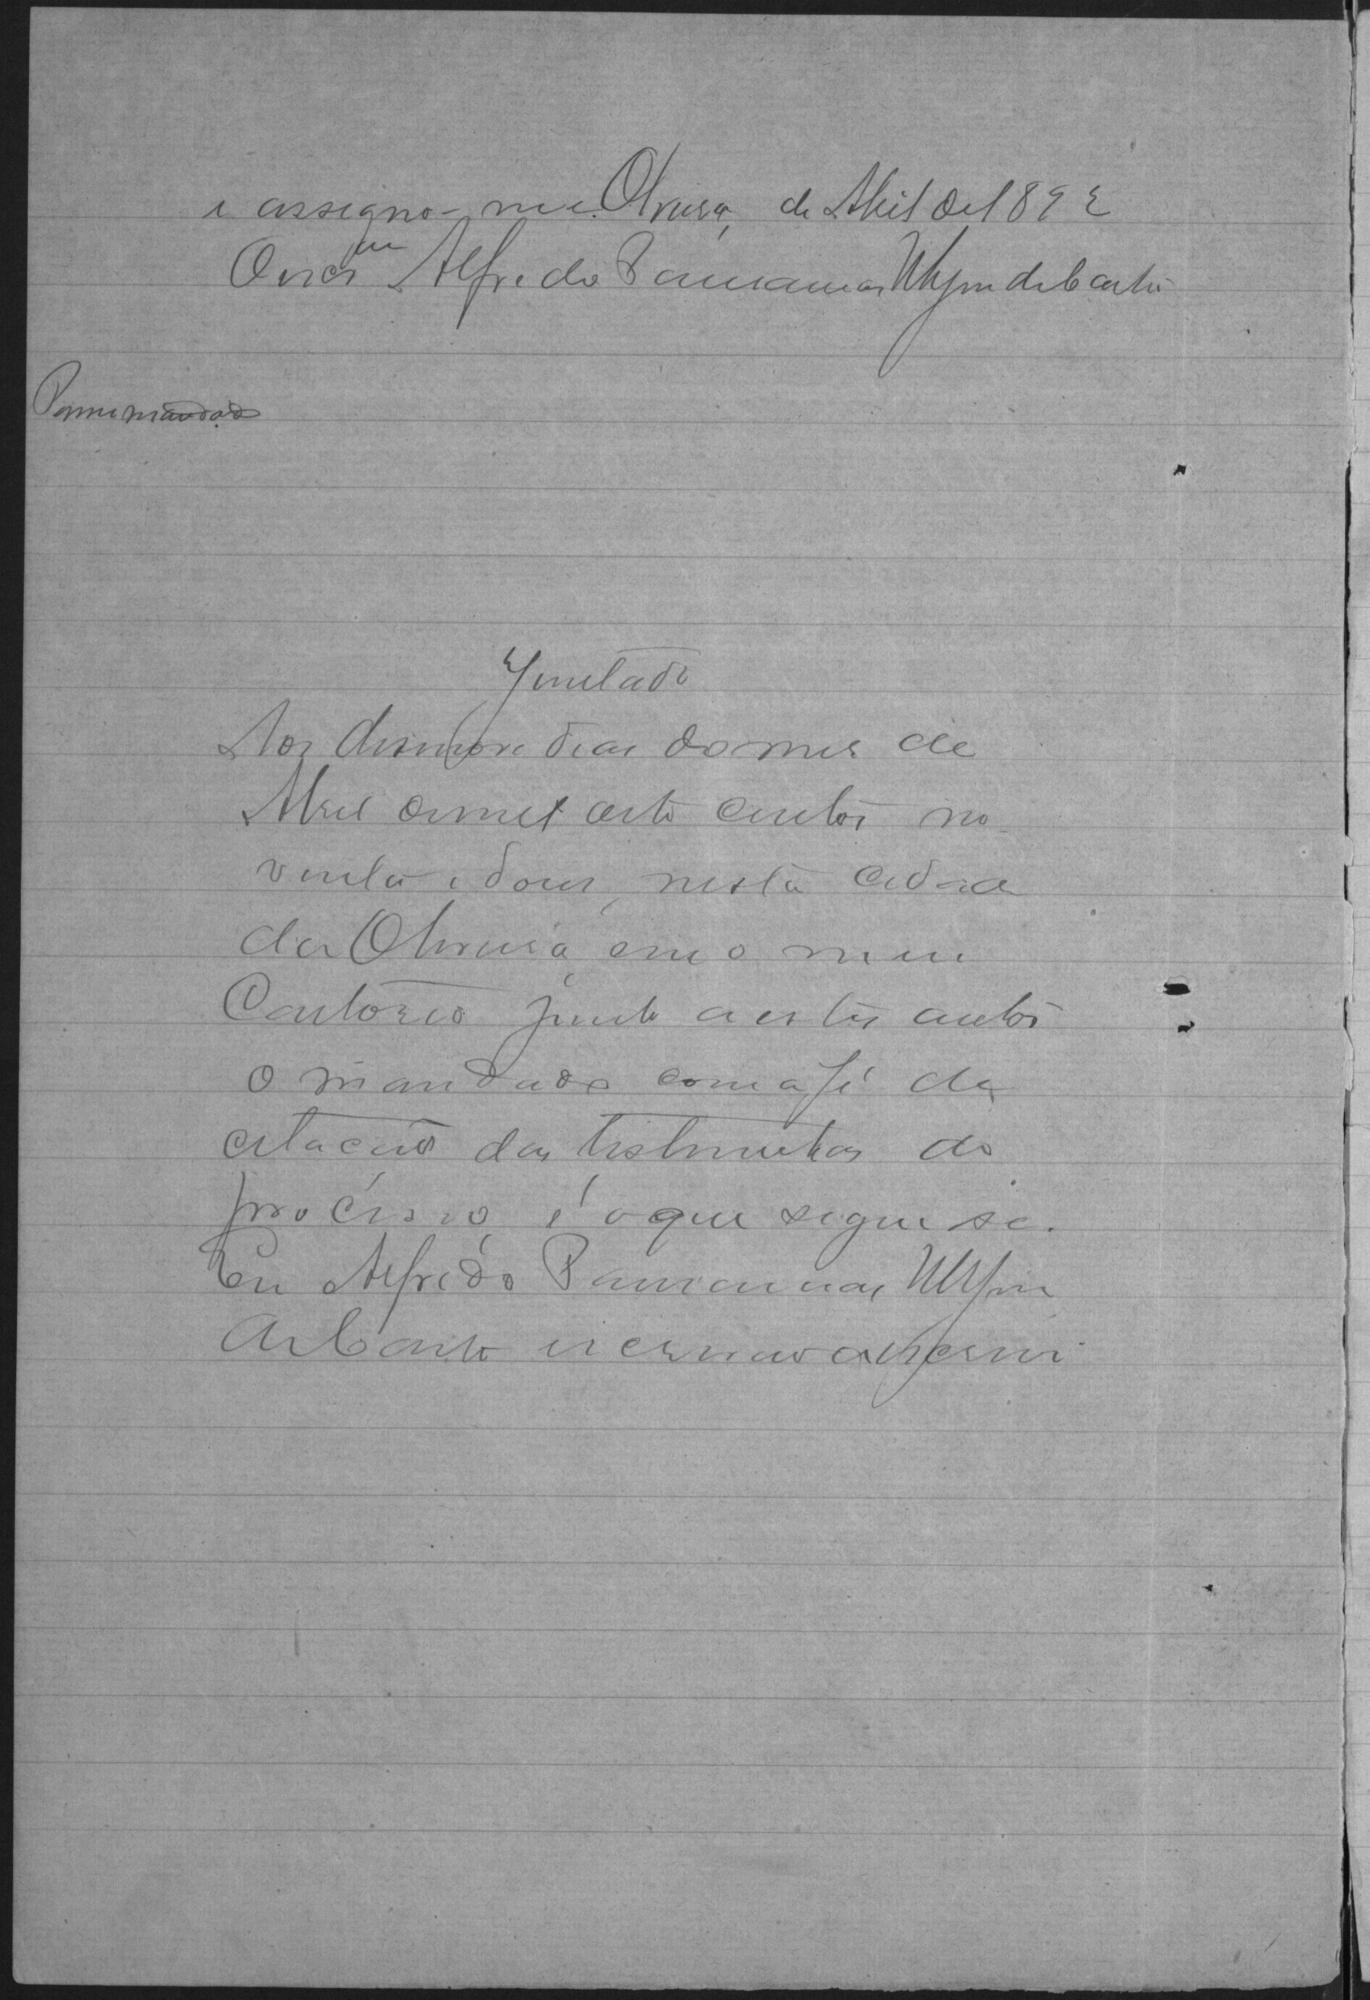 e assigno-me. Oliveira, de Abril de 1892
O escram Alfredo Paucannas Wefon de Casto
Passei mandado
Juntado
Aos desenove dias do mes de
Abril de mil oito centos no
venta e dous, nesta cidade
da Oliveira, em o meu
Cartorio junto a estes autos
o mandado com a fé da
citacão das testemunhas do
processo, é o que segue se.
Eu Alfredo
de Casto escrivão o escrevi